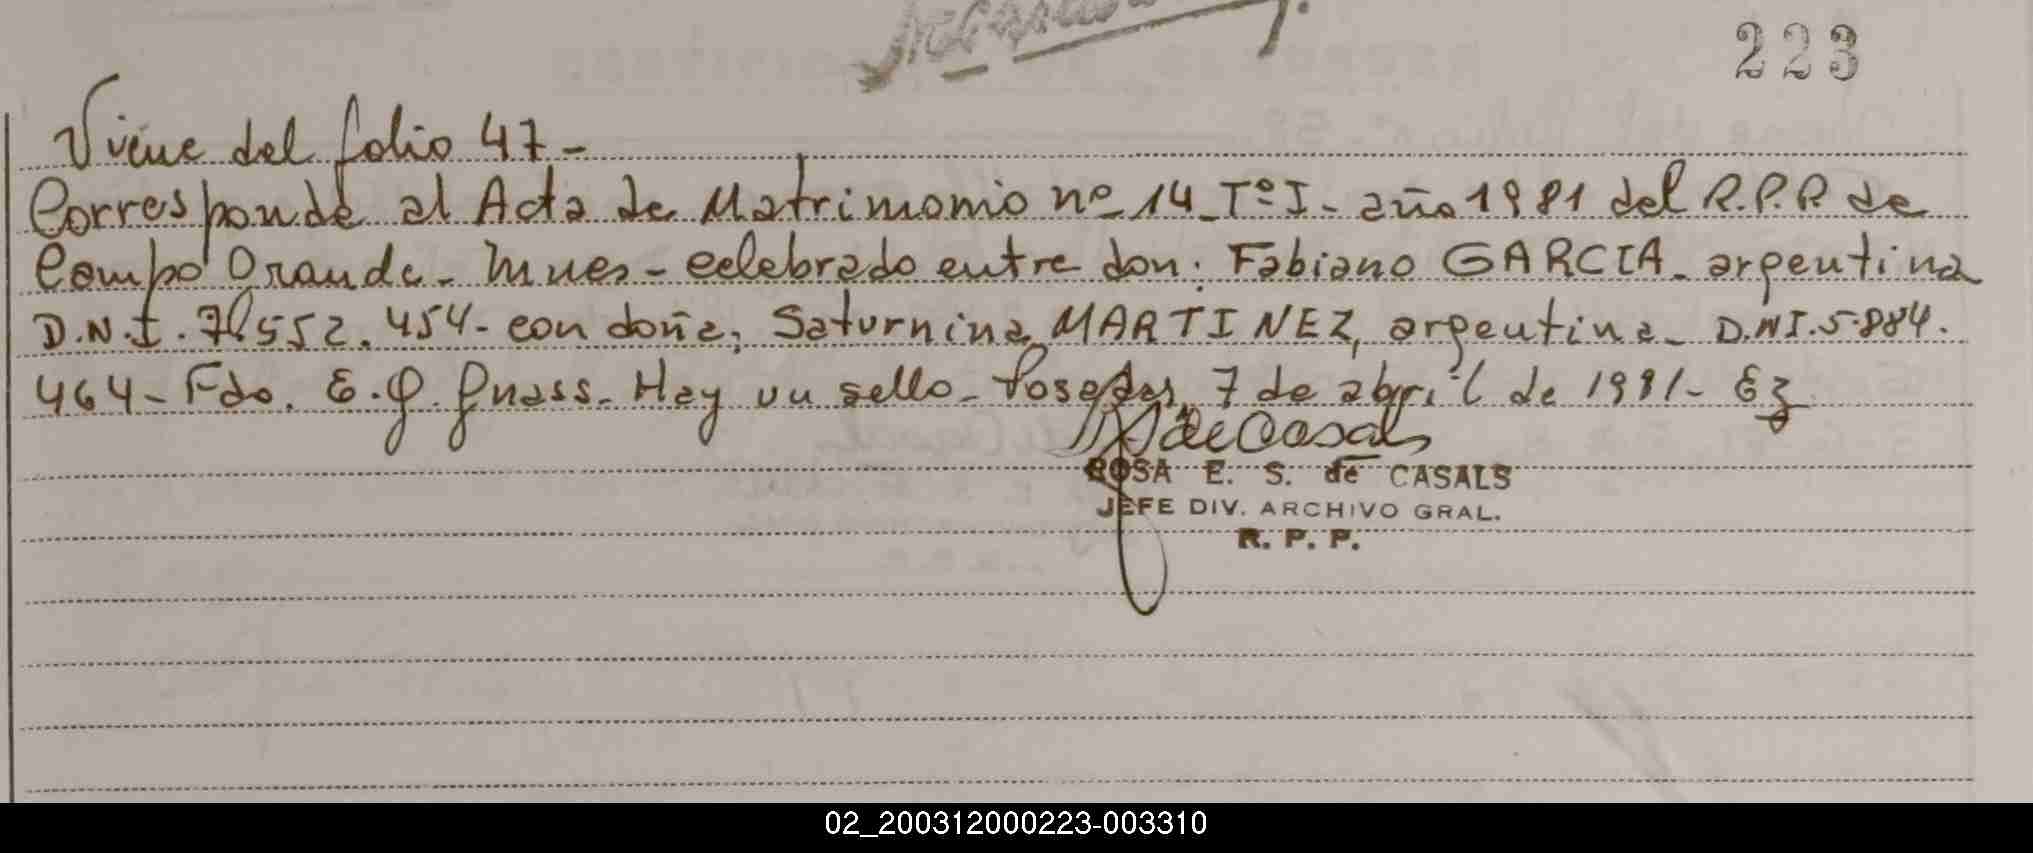 223
Viene del folio 47-
Corresponde al Acta de Matrimonio nº 14-Tº I- año 1981 del R.P.P. de
Campo Grande- Mnes- celebrado entre don: Fabiano GARCIA- argentina
D.N.I. 7.552.454- con doña; Saturnina MARTINEZ, argentina- D.NI.5.884.
464- Fdo. E.G. Gnass- Hay un sello- Posadas, 7 de abril de 1981-
de Casals
ROSA E. S. de CASALS
JEFE DIV. ARCHIVO GRAL.
R. P. P.
02_200312000223-003310